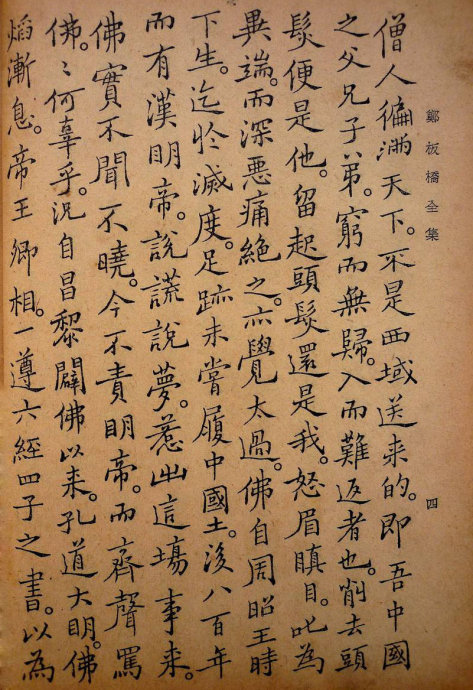 鄭板橋全集
四
僧人徧滿天下。不是西域送来的。即吾中國
之父兄子弟。窮而無歸。入而難返者也。削去頭
髮便是他。留起頭髮還是我。怒眉瞋目。叱為
異端。而深惡痛絶之。亦覺太過。佛自周昭王時
下生。迄於滅度。足跡未嘗履中國土。後八百年
而有漢明帝。說謊說夢。惹出這場事来。
佛實不聞不曉。今不責明帝。而齊聲罵
佛。〻何辜乎。況自昌黎闢佛以来。孔道大明。佛
焰漸息。帝王卿相。一遵六經四子之書。以為